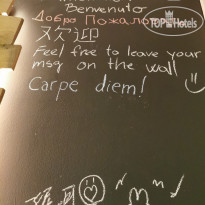 Benvenuto
Добро Пожало
TOP Hotels
欢迎
Feel free to leave your
msg on the wall
Carpe diem!